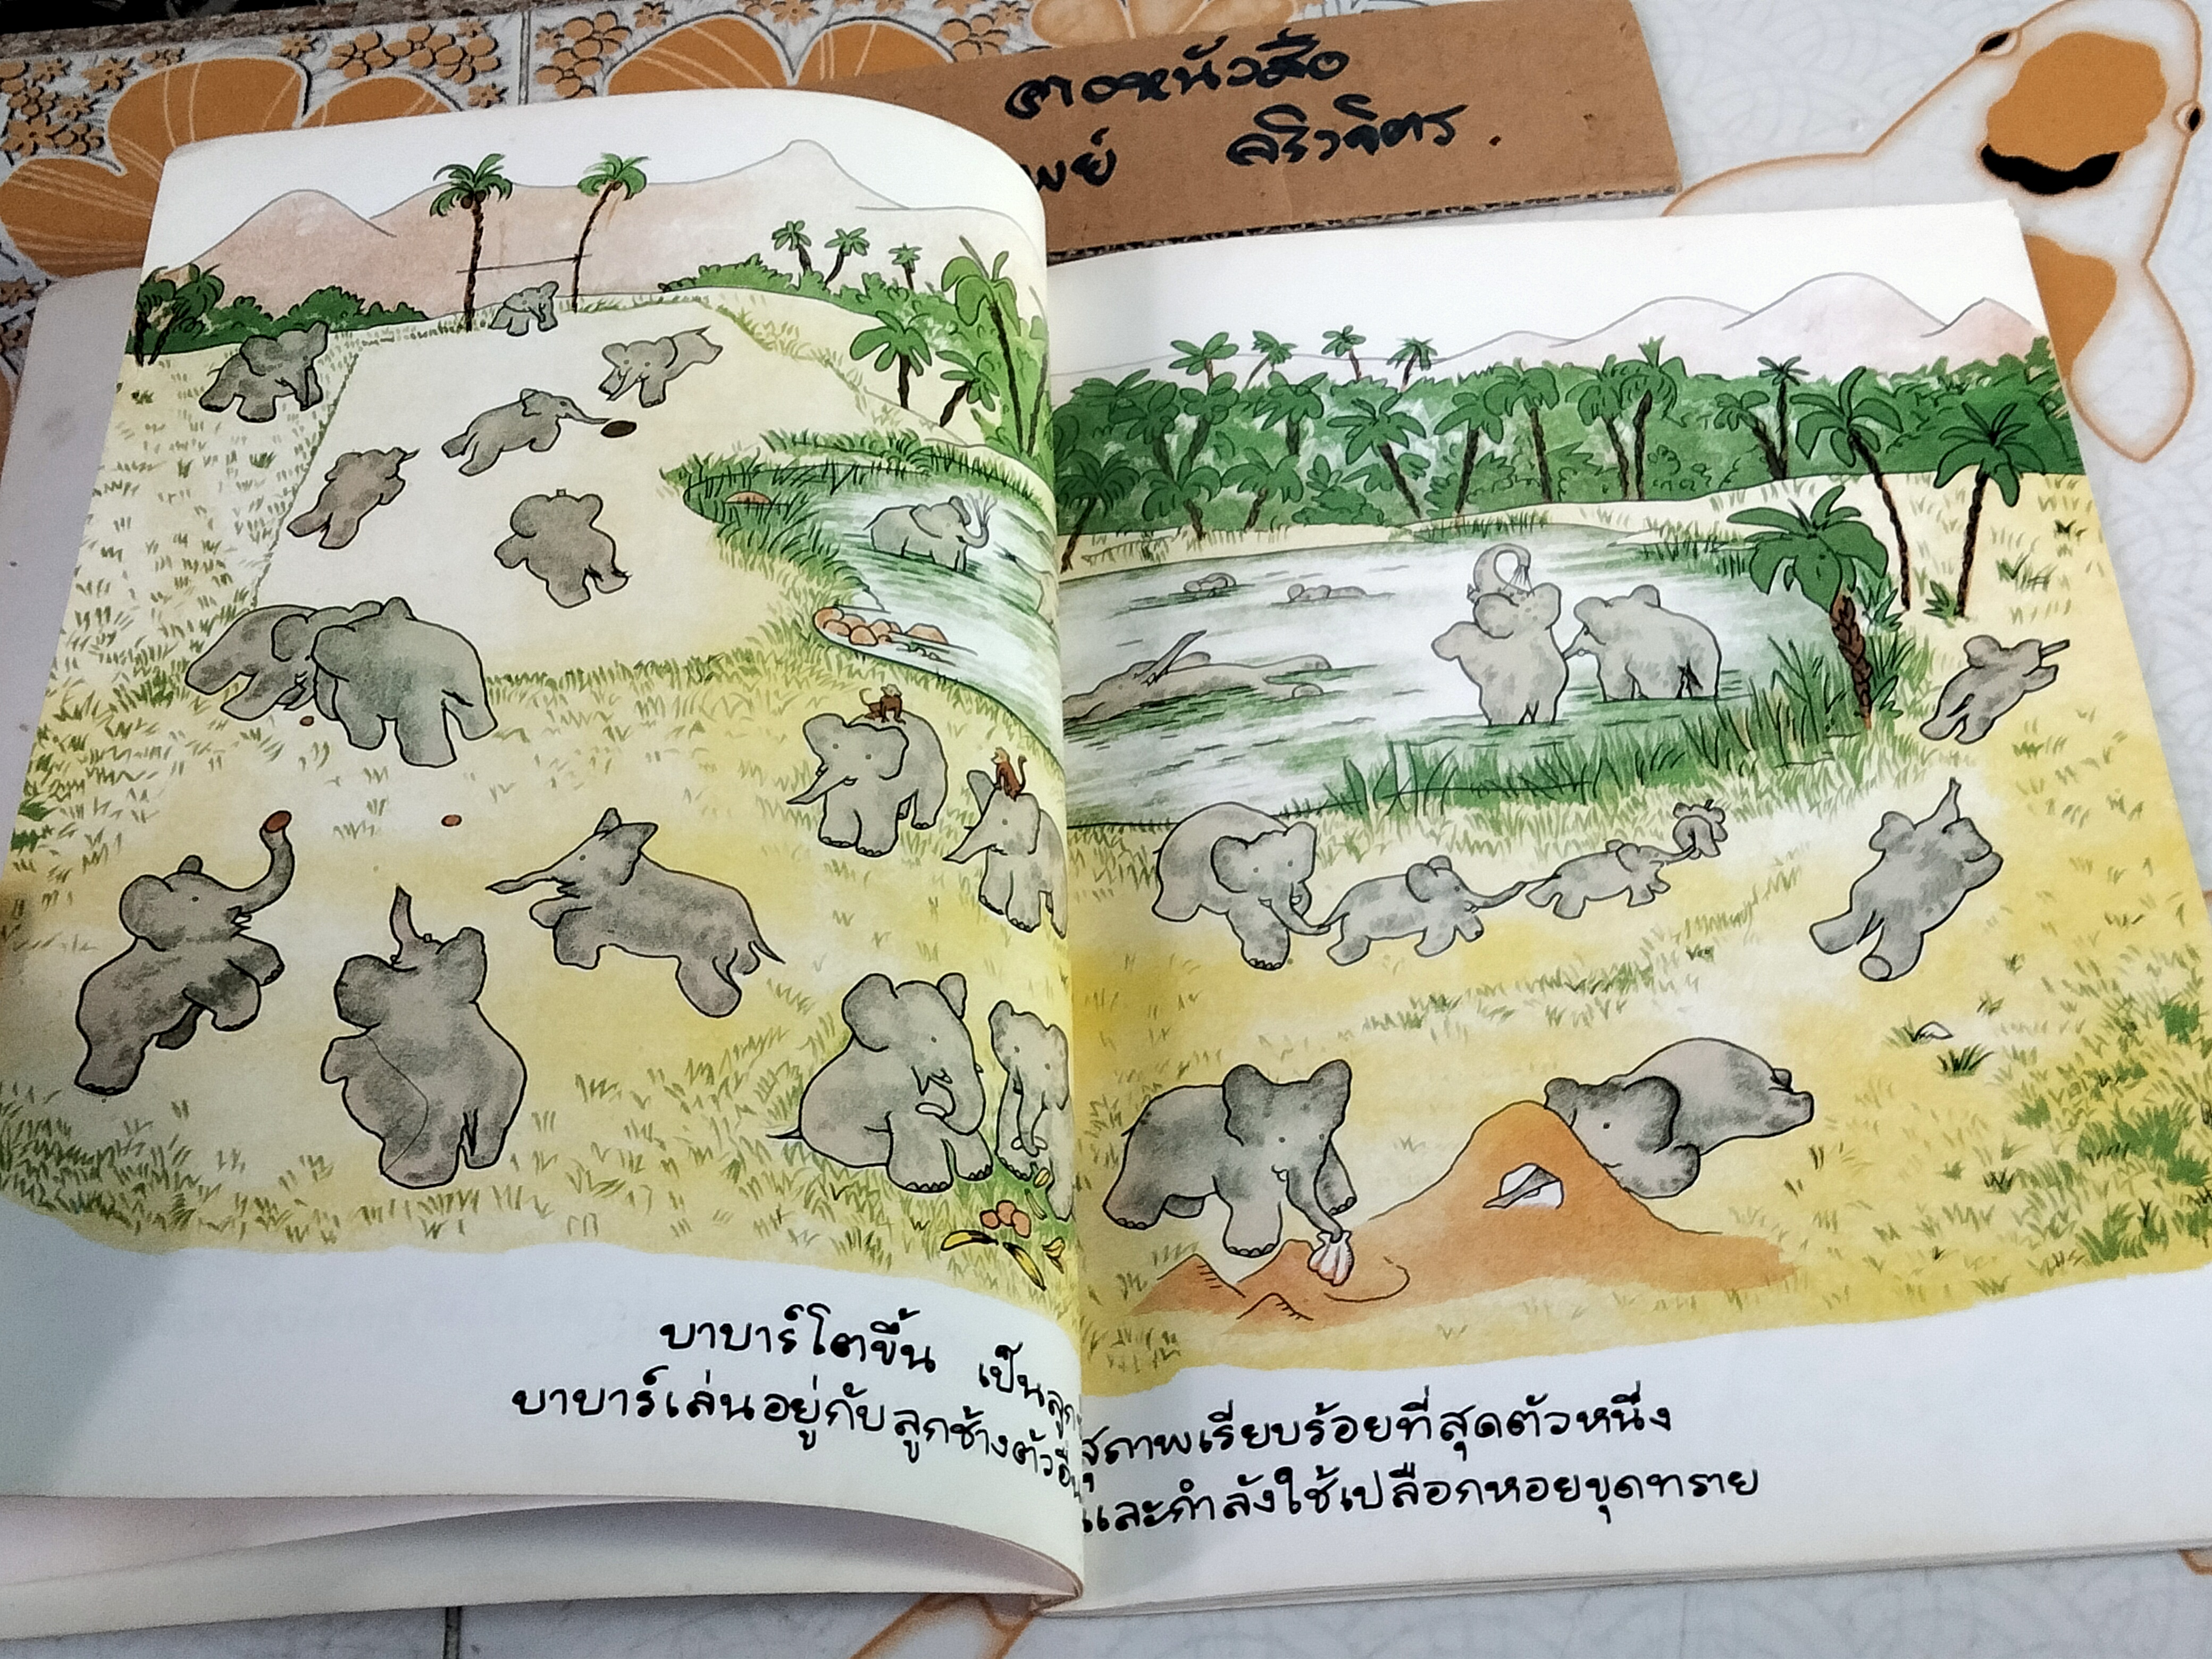 ตอหนัวสือ
พย์ ศริวจิตร.
บาบาร์โตขึ้น เป็นลูก สุภาพเรียบร้อยที่สุดตัวหนึ่ง
บาบาร์เล่นอยู่กับลูกช้างตัวอื่น และกำลังใช้เปลือกหอยขุดทราย